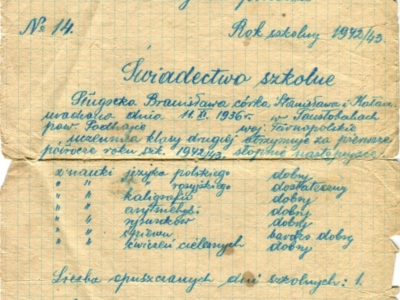 No 14.
Rok szkolny 1942/43.
Świadectwo szkolne
Bronisława córka Stanisława i
urodzona dnia 11. XI. 1936r. w Toustobabach
pow. Podhajce woj. Tarnopolskie
uczennica klasy drugiej otrzymuje za pierwsze
półrocze roku szk. 1942/43. stopnie następujące
z nauki języka polskiego dobry
" " rosyjskiego dostateczny
" " kaligrafii dobry
" " arytmetyki dobry
" " rysunków dobry
" " śpiewu bardzo dobry
" " ćwiczeń cielesnych dobry
Liczba opuszczonych dni szkolnych: 1.